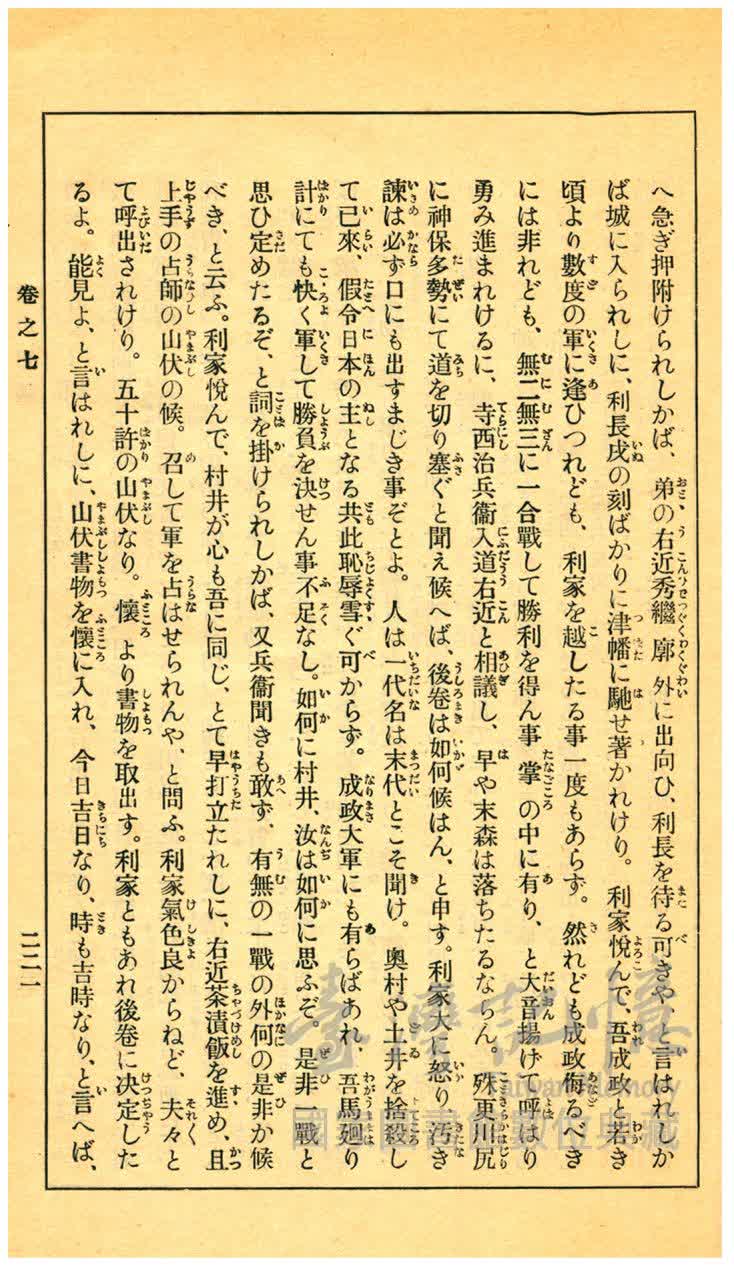 へ急ぎ押附けられしかば、弟の右近秀繼廓外に出向ひ、利長を待る可きや、と言はれしか
ば城に入られしに、利長戌の刻ばかりに津幡に馳せ著かれけり。利家悦んで、吾成政と若き
頃より數度の軍に逢ひつれども、利家を越したる事一度もあらず。然れども成政侮るべき
には非れども、無二無三に一合戰して勝利を得ん事掌の中に有り、と大音揚げて呼はり
勇み進まれけるに、寺西治兵衞入道右近と相議し、早や末森は落ちたるならん。殊更川尻
に神保多勢にて道を切り塞ぐと聞え候へば、後卷は如何候はん、と申す。利家大に怒り汚き
諫は必ず口にも出すまじき事ぞとよ。人は一代名は末代とこそ聞け。奧村や土井を捨殺し
て已來、假令日本の主となる共此恥辱雪ぐ可からず。成政大軍にも有らばあれ、吾馬廻り
計にても快く軍して勝負を決せん事不足なし。如何に村井、汝は如何に思ふぞ。是非一戰と
思ひ定めたるぞ、と詞を掛けられしかば、又兵衞聞きも敢ず、有無の一戰の外何の是非か候
べき、と云ふ。利家悦んで、村井が心も吾に同じ、とて早打立たれしに、右近茶漬飯を進め、且
上手の占師の山伏の候。召して軍を占はせられんや、と問ふ。利家氣色良からねど、夫々と
て呼出されけり。五十許の山伏なり。懷より書物を取出す。利家ともあれ後卷に决定した
るよ。能見よ、と言はれしに、山伏書物を懷に入れ、今日吉日なり、時も吉時なり、と言へば、
卷之七
二二一
臺灣記憶
Taiwan Memory
國家圖書館數位典藏